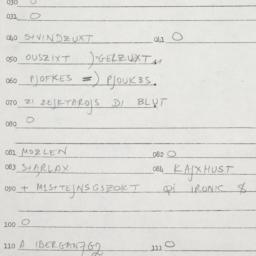 030 O
031 O
040 S+VINDZUXT 041 O
050 OUSZIXT )GELZUXT.
060 PJOFKES =) PJOUKES.
070 ZI ZEJKTAROJS DI BLUT
080 O
081 MOZLEN 082 O
083 S+ARLAX 084 KAJXHUST
090 + MIS+TEJNSGSZOKT IRONIC $
100 O
110 A IBERGANG 111 O